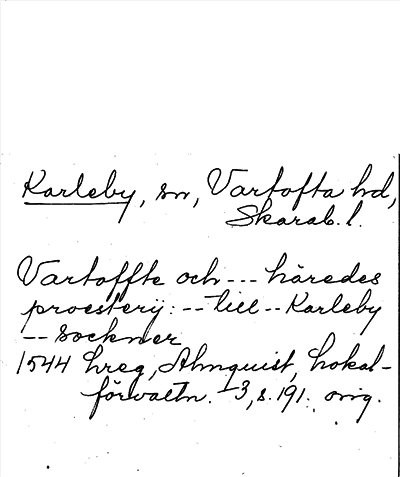 Karleby, sn, Vartofta hd,
Skarab. l.
Vartoffte och --- häredes
proesterij: -- till -- Karleby
-- sockner
1544 hreg, Almquist, Lokal-
förvaltn. 3, s. 191. orig.